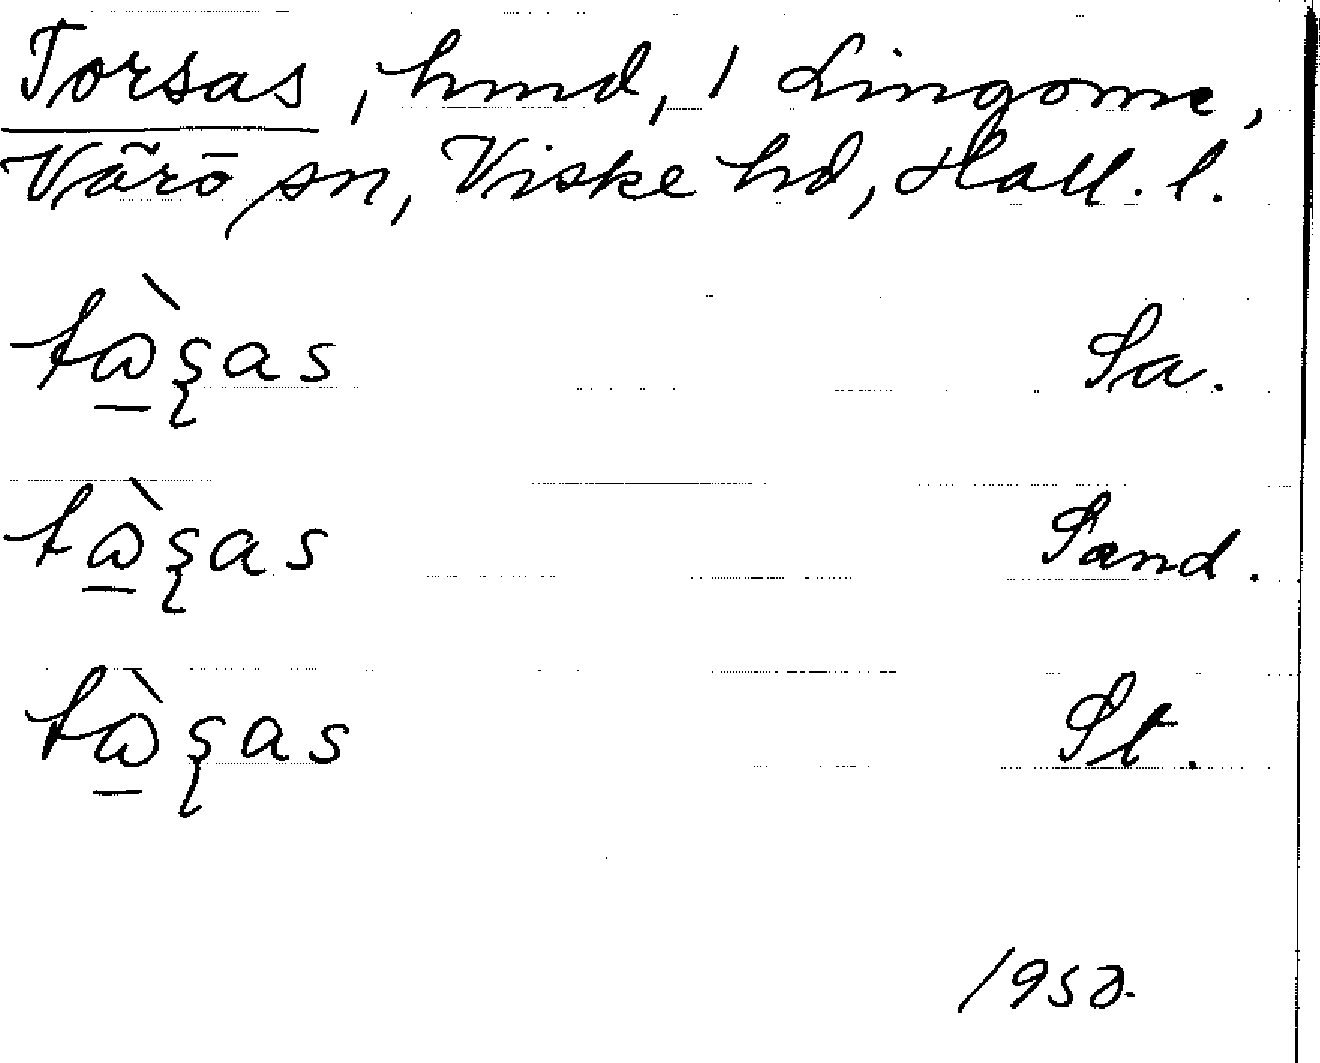 Torsas, hmd, 1 Lingome,
Värö sn, Viske hd, Hall. l.
tὼ̠ʂas Sa.
tὼ̠ʂas Sand.
tὼ̠ʂas St.
1952.